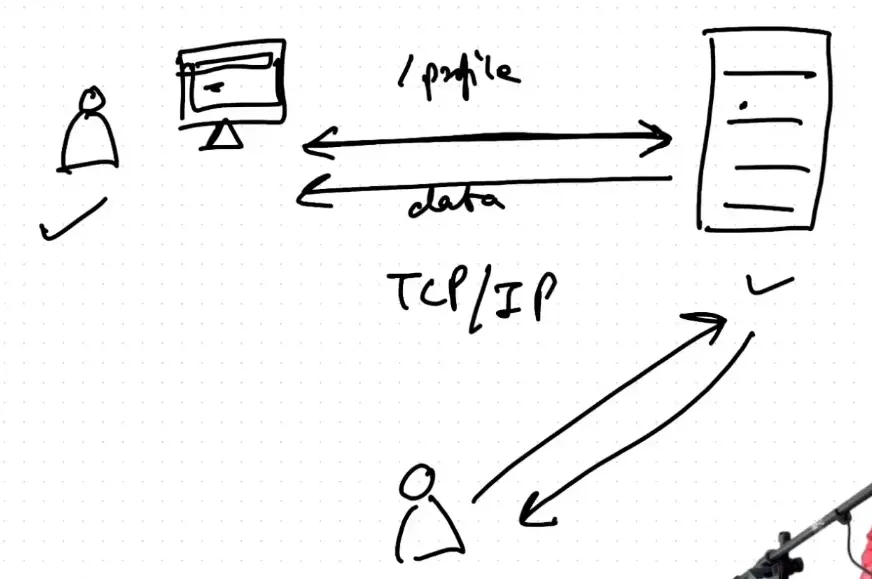 /profile
data
TCP/IP